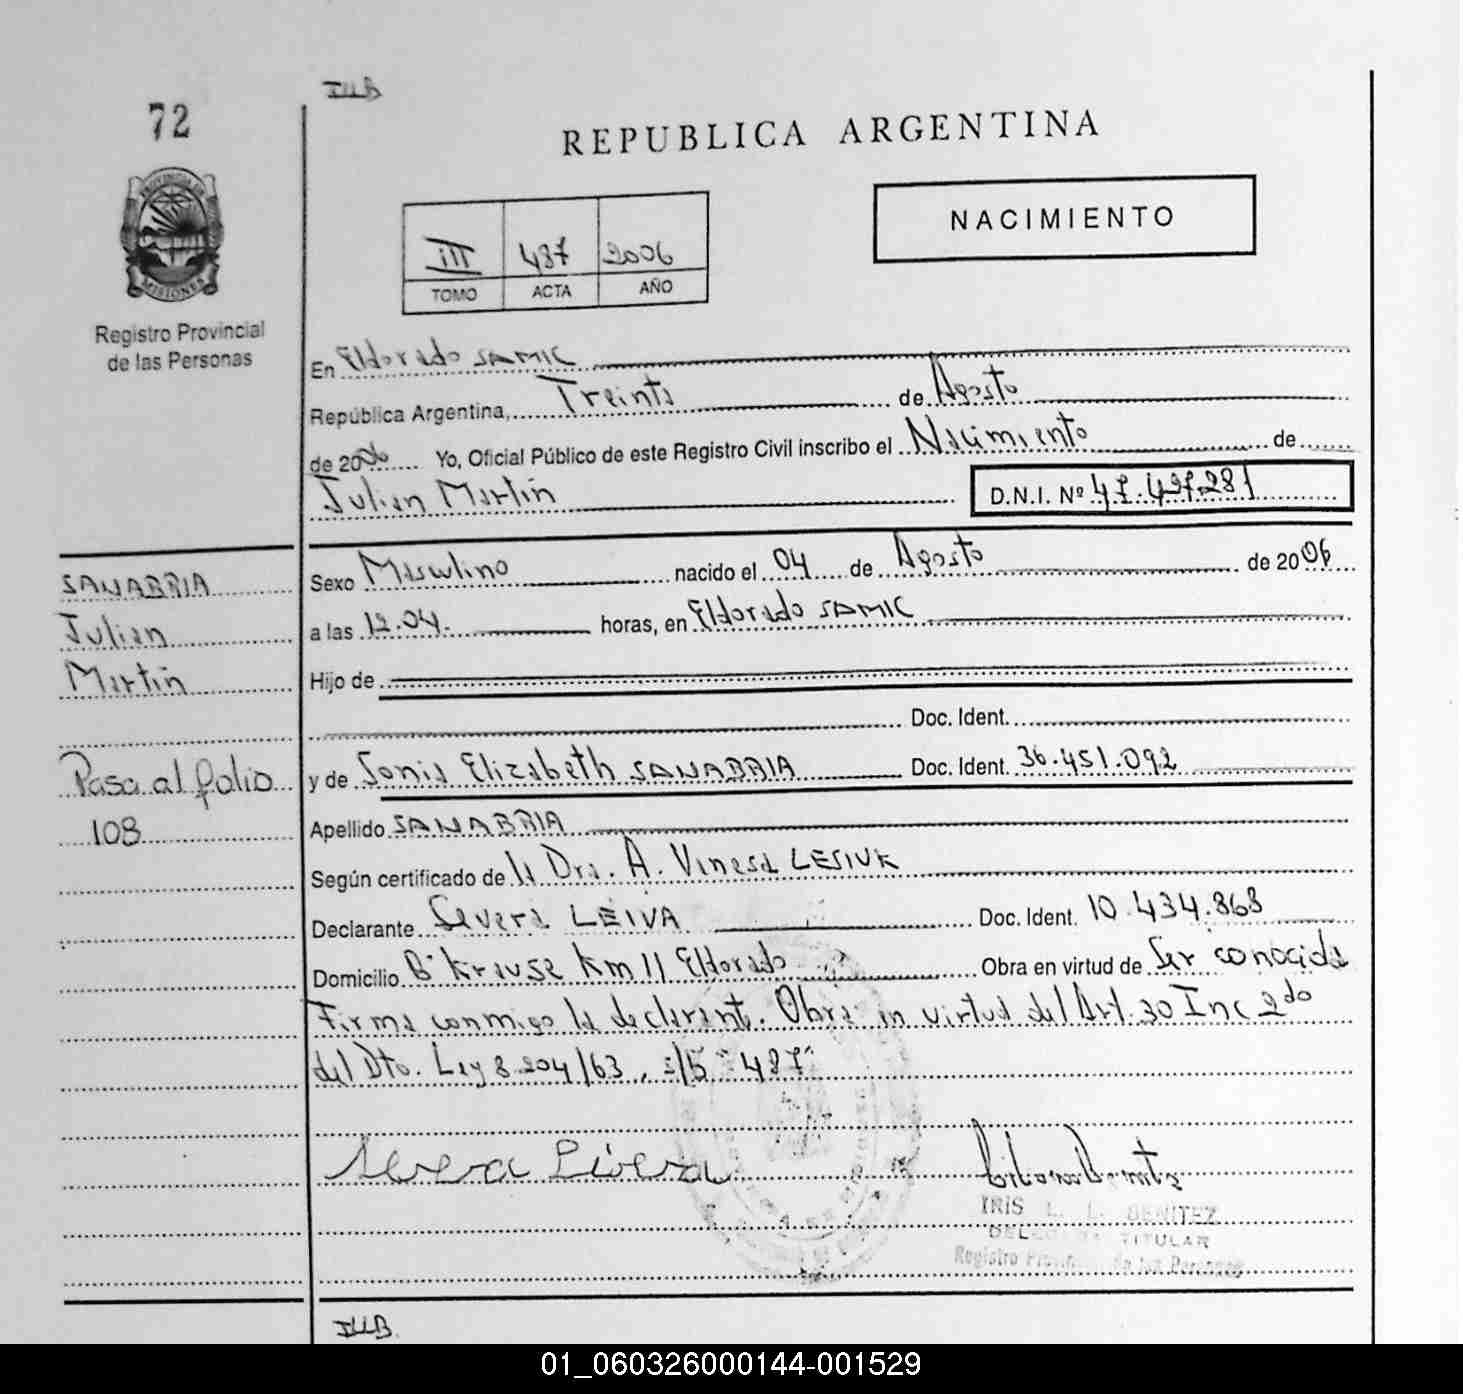 72
ILLB
REPUBLICA ARGENTINA
PROVINCIA DE
MISIONES
Registro Provincial
de las Personas
III 487 2006
TOMO ACTA AÑO
NACIMIENTO
En Eldorado SAMIC
República Argentina, Treinta de Agosto
de 2006 Yo, Oficial Público de este Registro Civil inscribo el Nacimiento de
Julian Martin D.N.I. Nº 47.497.281
SANABRIA
Julian
Martin
Pasa al folio
108
Sexo Masculino nacido el 04 de Agosto de 2006
a las 12.04. horas, en Eldorado SAMIC
Hijo de
Doc. Ident.
y de Sonia Elizabeth SANABRIA Doc. Ident. 36.451.092
Apellido SANABRIA
Según certificado de la Dra. A. Vanesa LESIUK
Declarante Severa LEIVA Doc. Ident. 10.434.868
Domicilio Bº Krause Km 11 Eldorado Obra en virtud de Ser conocida
Firma conmigo la declarante. Obra en virtud del Art. 30 Inc 2do
del Dto. Ley 8.204/63, s/5 "487"
IRIS L. L. BENITEZ
DELEGADA TITULAR
Registro Provincial de las Personas
ILLB.
01_060326000144-001529